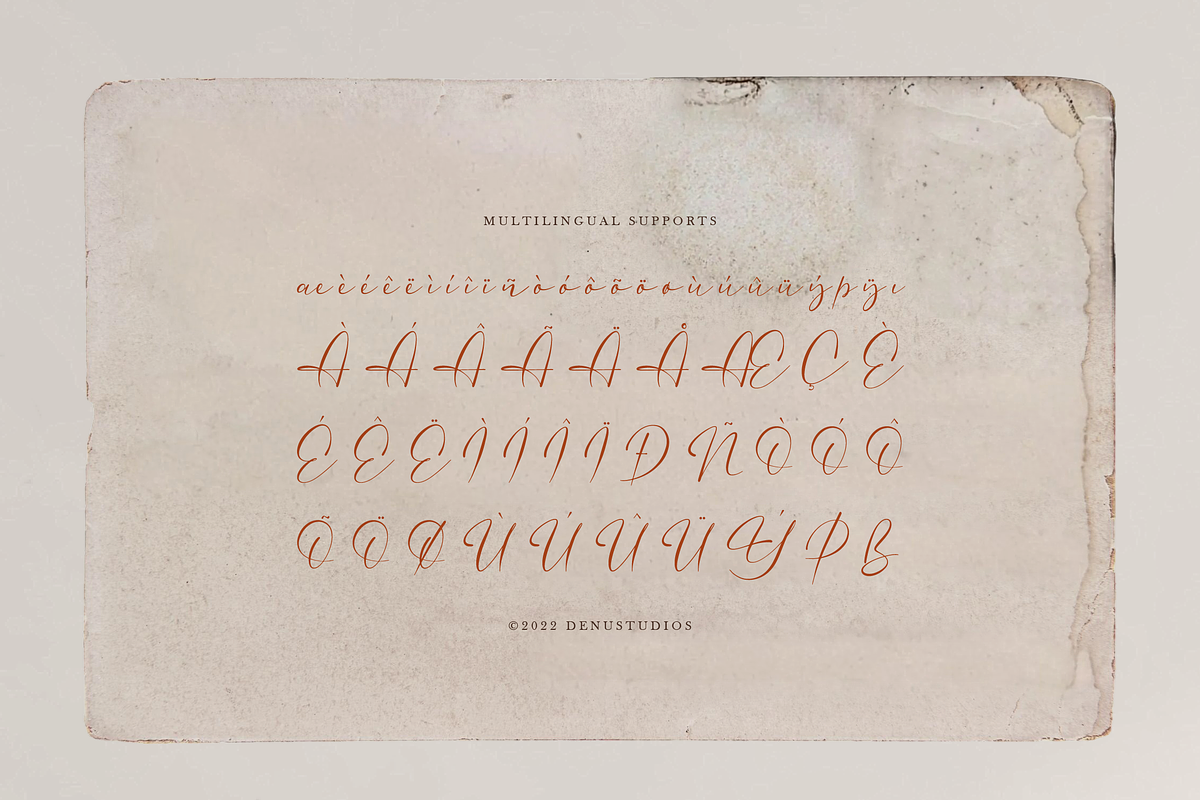 MULTILINGUAL SUPPORTS
æèéêëìíîïñòóôõöøùúûüýþÿı
ÀÁÂÃÄÅÆÇÈ
ÉÊËÌÍÎÏÐÑÒÓÔ
ÕÖØÙÚÛÜÝÞß
©2022 DENUSTUDIOS